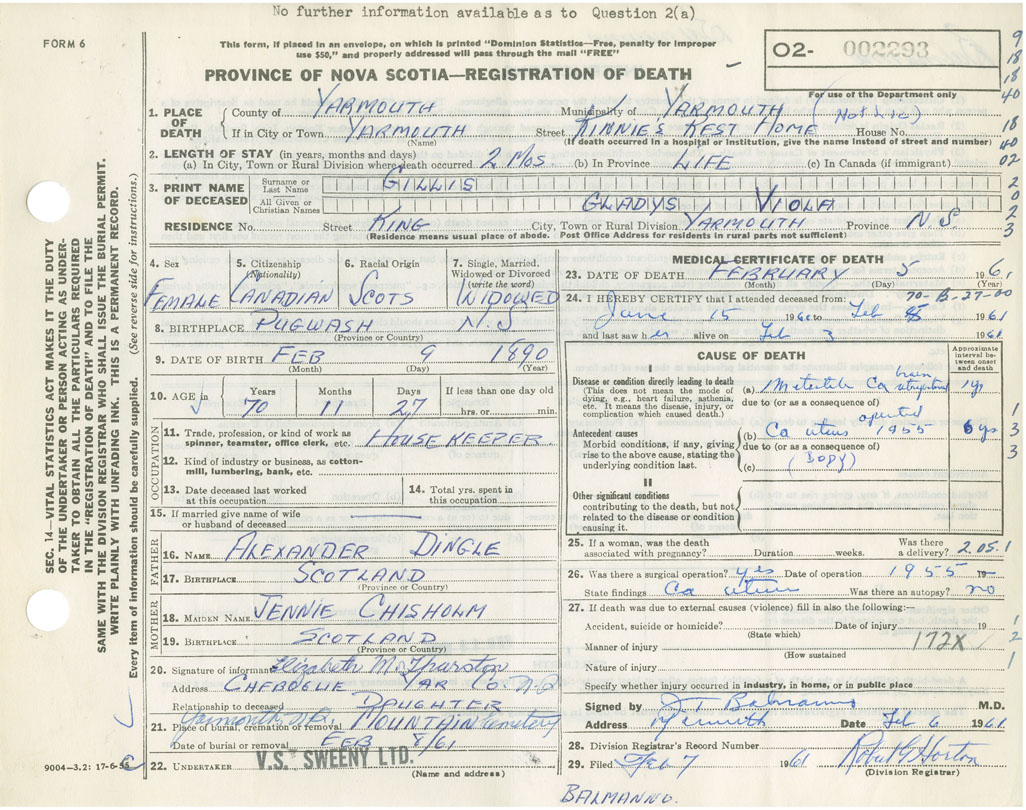 No further information available as to Question 2(a)
FORM 6
This form, if placed in an envelope, on which is printed "Dominion Statistics—Free, penalty for improper
use $50," and properly addressed will pass through the mail "FREE"
PROVINCE OF NOVA SCOTIA—REGISTRATION OF DEATH
O2- 002293
For use of the Department only
1. PLACE OF DEATH
County of YARMOUTH Municipality of YARMOUTH
If in City or Town YARMOUTH Street KINNIE'S REST HOME House No.
(Name) (If death occurred in a hospital or institution, give the name instead of street and number)
2. LENGTH OF STAY (in years, months and days)
(a) In City, Town or Rural Division where death occurred 2 MOS (b) In Province LIFE (c) In Canada (if immigrant)
3. PRINT NAME OF DECEASED
Surname or Last Name GILLIS
All Given or Christian Names GLADYS VIOLA
RESIDENCE No. Street KING City, Town or Rural Division YARMOUTH Province N.S.
(Residence means usual place of abode. Post Office Address for residents in rural parts not sufficient)
4. Sex FEMALE
5. Citizenship (Nationality) CANADIAN
6. Racial Origin SCOTS
7. Single, Married, Widowed or Divorced (write the word) WIDOWED
8. BIRTHPLACE PUGWASH N.S
(Province or Country)
9. DATE OF BIRTH FEB 9 1890
(Month) (Day) (Year)
10. AGE in Years 70 Months 11 Days 27 If less than one day old hrs. or min.
OCCUPATION
11. Trade, profession, or kind of work as spinner, teamster, office clerk, etc. HOUSEKEEPER
12. Kind of industry or business, as cotton-mill, lumbering, bank, etc.
13. Date deceased last worked at this occupation
14. Total yrs. spent in this occupation
15. If married give name of wife or husband of deceased
FATHER
16. NAME ALEXANDER DINGLE
17. BIRTHPLACE SCOTLAND
(Province or Country)
MOTHER
18. MAIDEN NAME JENNIE CHISHOLM
19. BIRTHPLACE SCOTLAND
(Province or Country)
20. Signature of informant Elizabeth M. Thurston
Address CHEBOGUE YAR CO. N.S.
Relationship to deceased DAUGHTER
21. Place of burial, cremation or removal MOUNTAIN Cemetery
Date of burial or removal FEB 8/61
22. UNDERTAKER V.S. SWEENY LTD.
(Name and address)
MEDICAL CERTIFICATE OF DEATH
23. DATE OF DEATH FEBRUARY 5 1961
(Month) (Day) (Year)
24. I HEREBY CERTIFY that I attended deceased from:
June 15 1960 to Feb 5 1961
and last saw her alive on Feb 3 1961
CAUSE OF DEATH
Approximate interval between onset and death
I
Disease or condition directly leading to death
(This does not mean the mode of dying, e.g., heart failure, asthenia, etc. It means the disease, injury, or complication which caused death.)
(a) brain 1 yr
due to (or as a consequence of)
Antecedent causes
Morbid conditions, if any, giving rise to the above cause, stating the underlying condition last.
(b) Ca uterus operated 1955 6 yrs
due to (or as a consequence of)
(c)
II
Other significant conditions contributing to the death, but not related to the disease or condition causing it.
25. If a woman, was the death associated with pregnancy? Duration weeks. Was there a delivery? 205.1
26. Was there a surgical operation? yes Date of operation 1955 19
State findings Ca uterus Was there an autopsy? no
27. If death was due to external causes (violence) fill in also the following:—
Accident, suicide or homicide? Date of injury 19
(State which)
Manner of injury 172X
(How sustained
Nature of injury
Specify whether injury occurred in industry, in home, or in public place
Signed by J T Balmanno M.D.
Address Yarmouth Date Feb 6 1961
28. Division Registrar's Record Number
29. Filed Feb 7 1961 Robert G Horton
(Division Registrar)
BALMANNO.
SEC. 14—VITAL STATISTICS ACT MAKES IT THE DUTY
OF THE UNDERTAKER OR PERSON ACTING AS UNDER-
TAKER TO OBTAIN ALL THE PARTICULARS REQUIRED
IN THE "REGISTRATION OF DEATH" AND TO FILE THE
SAME WITH THE DIVISION REGISTRAR WHO SHALL ISSUE THE BURIAL PERMIT.
WRITE PLAINLY WITH UNFADING INK. THIS IS A PERMANENT RECORD.
Every item of information should be carefully supplied. (See reverse side for instructions.)
9004-3.2: 17-6-58